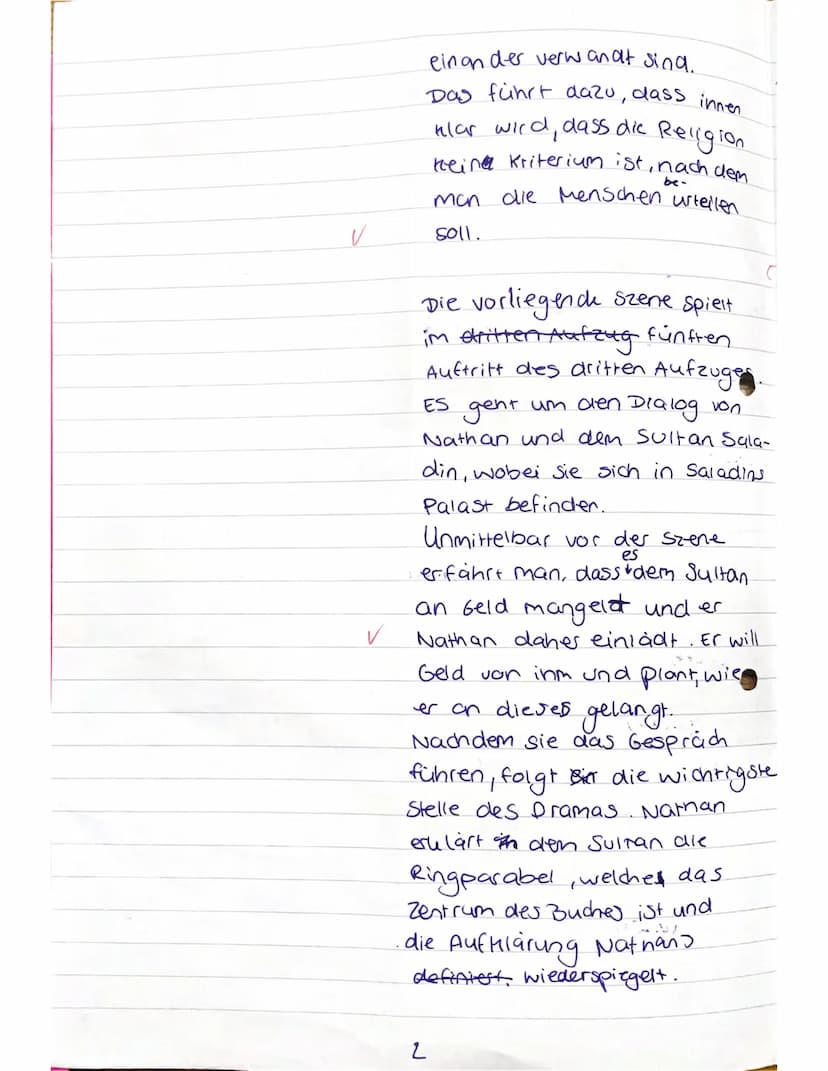 einander verwandt sind.
Das führt dazu, dass ihnen
klar wird, dass die Religion
keine Kriterium ist, nach dem
man die Menschen be-urteilen
soll.
Die vorliegende Szene spielt
im dritten Aufzug fünften
Auftritt des dritten Aufzuges.
ES geht um den Dialog von
Nathan und dem Sultan Sala-
din, wobei sie sich in Saladins
Palast befinden.
Unmittelbar vor der Szene
erfährt man, dass es dem Sultan
an Geld mangelt und er
Nathan daher einlädt. Er will
Geld von ihm und plant, wie
er an dieses gelangt.
Nachdem sie das Gespräch
führen, folgt die wichtigste
Stelle des Dramas. Nathan
erklärt dem Sultan die
Ringparabel, welches das
Zentrum des Buches ist und
die Aufklärung Nathans
definiert. wiederspiegelt.
2